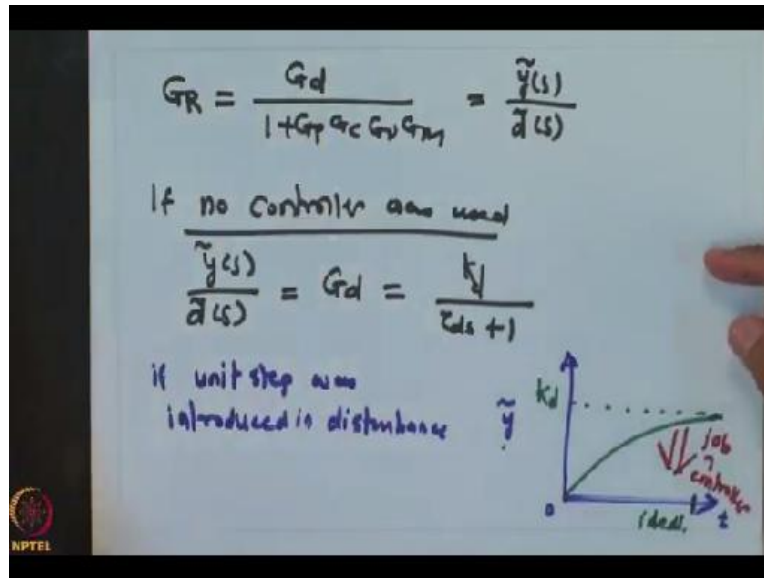 GR = Gd / 1+Gp Gc Gv Gm = ỹ(s) / d̃(s)
If no controller was used
ỹ(s) / d̃(s) = Gd = kd / τds +1
if unit step was
introduced in disturbance
ỹ
kd
job
of
controller
0
ideal.
t
NPTEL